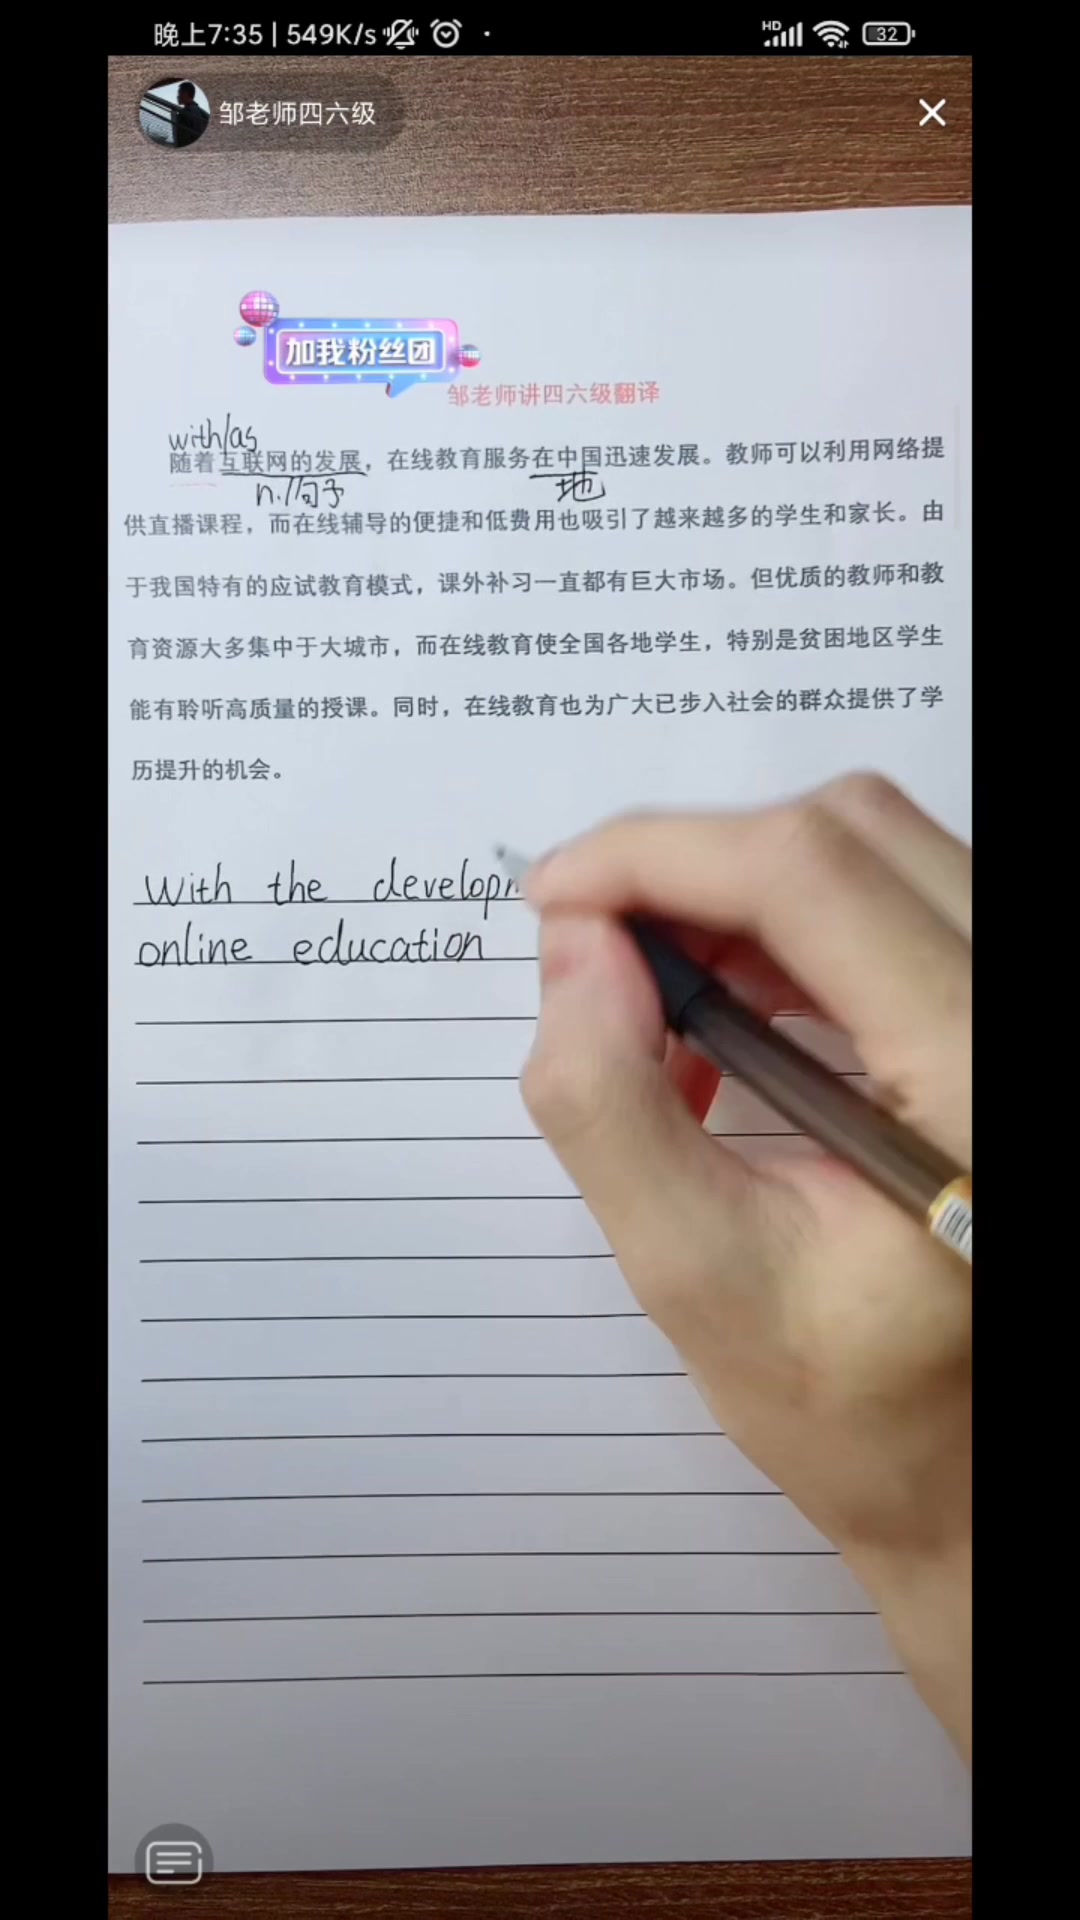 晚上7:35 | 549K/s
HD
32
邹老师四六级
加我粉丝团
邹老师讲四六级翻译
with/as
随着互联网的发展，在线教育服务在中国迅速发展。教师可以利用网络提
n./句子 地
供直播课程，而在线辅导的便捷和低费用也吸引了越来越多的学生和家长。由
于我国特有的应试教育模式，课外补习一直都有巨大市场。但优质的教师和教
育资源大多集中于大城市，而在线教育使全国各地学生，特别是贫困地区学生
能有聆听高质量的授课。同时，在线教育也为广大已步入社会的群众提供了学
历提升的机会。
With the
online education